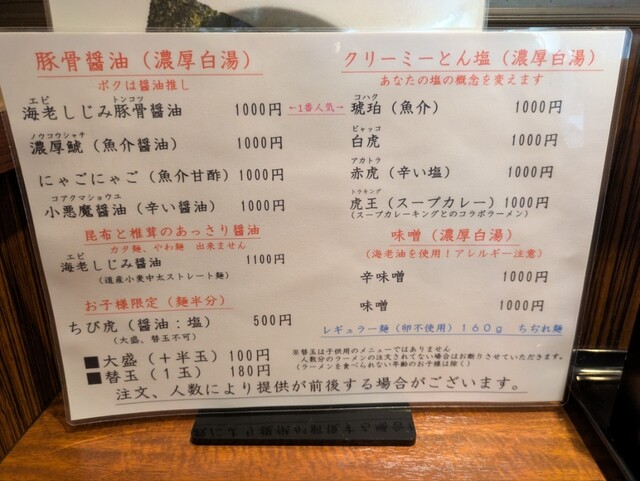 豚骨醤油（濃厚白湯）
ボクは醤油推し
エビ トンコツ
海老しじみ豚骨醤油 1000円
ノウコウシャチ
濃厚鯱（魚介醤油） 1000円
にゃごにゃご（魚介甘酢） 1000円
コアクマショウユ
小悪魔醤油（辛い醤油） 1000円
昆布と椎茸のあっさり醤油
カタ麺、やわ麺 出来ません
エビ
海老しじみ醤油 1100円
（道産小麦中太ストレート麺）
お子様限定（麺半分）
ちび虎（醤油：塩） 500円
（大盛、替玉不可）
■大盛（＋半玉）100円
■替玉（１玉） 180円
←1番人気→
クリーミーとん塩（濃厚白湯）
あなたの塩の概念を変えます
コハク
琥珀（魚介） 1000円
ビャッコ
白虎 1000円
アカトラ
赤虎（辛い塩） 1000円
トラキング
虎王（スープカレー）1000円
（スープカレーキングとのコラボラーメン）
味噌（濃厚白湯）
（海老油を使用！アレルギー注意）
辛味噌 1000円
味噌 1000円
レギュラー麺（卵不使用）160g ちぢれ麺
※替玉は子供用のメニューではありません
人数分のラーメンの注文されてない場合はお断りさせていただきます。
（ラーメンを食べられない年齢のお子様は除く）
注文、人数により提供が前後する場合がございます。